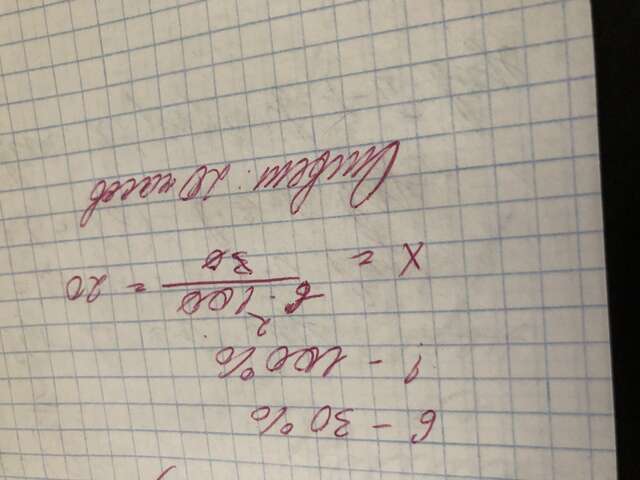 6 - 30%
? - 100%
x = 6² · 100 / 30 = 20
Ответ: 20 часов